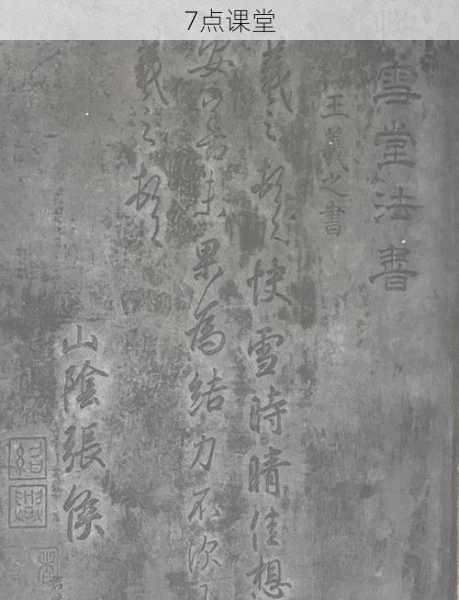 7点课堂
雪堂法書
王羲之書
羲之頓首快雪時晴佳想
安善未果為結力不次王
羲之頓首
山陰張侯